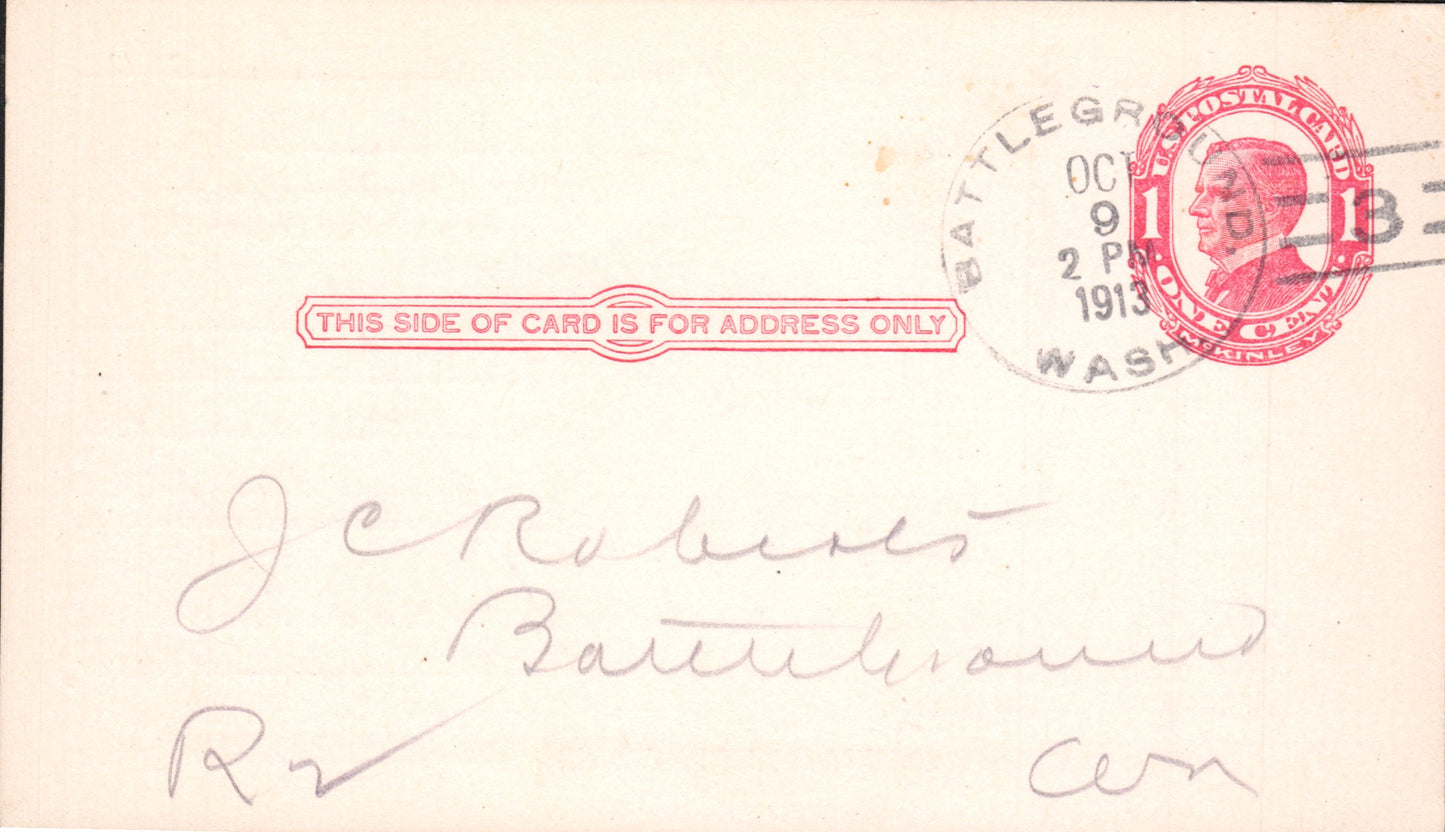 U.S. POSTAL CARD
1 1
ONE CENT
McKINLEY
BATTLEGROUND.
OCT
9
2 PM
1913
WASH
3
THIS SIDE OF CARD IS FOR ADDRESS ONLY
J C Roberts
Battleground
R 2